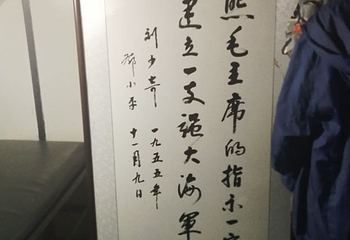 照毛主席的指示一
建立一支强大海軍
刘少奇 一九五五年
鄧小平 十一月九日